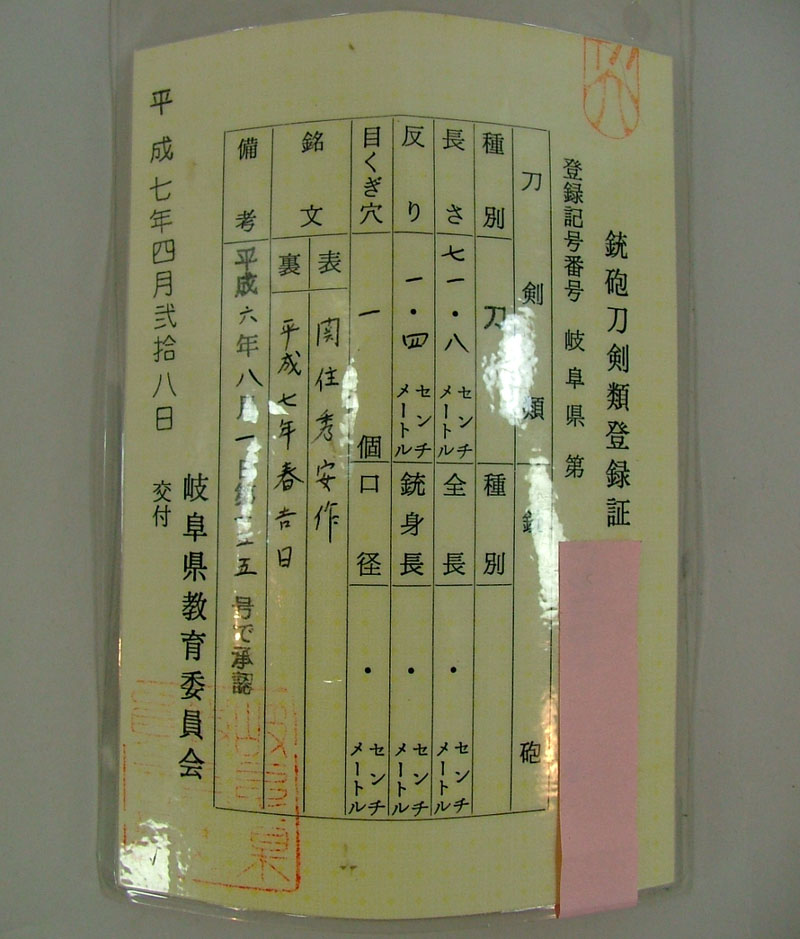 銃砲刀剣類登録証
登録記号番号 岐阜県 第
刀剣類
銃砲
種別 刀
種別
長さ 七一・八 センチメートル
全長 ・ センチメートル
反り 一・四 センチメートル
銃身長 ・ センチメートル
目くぎ穴 一 個
口径 ・ センチメートル
銘文
表 関住秀安作
裏 平成七年春吉日
備考 平成六年八月一日第 五号で承認
平成七年四月弐拾八日 交付
岐阜県教育委員会